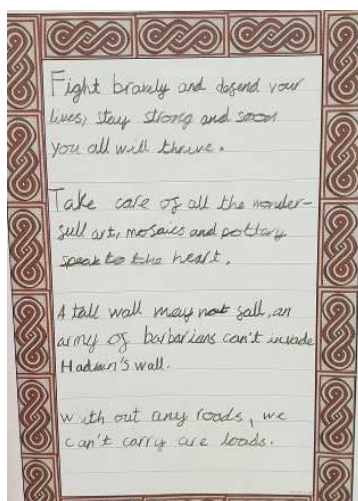 Fight bravely and defend your
lives, stay strong and soon
you all will thrive.
Take care of all the wonder-
full art, mosaics and pottery
speak to the heart.
A tall wall may not fall, an
army of barbarians can't invade
Hadrian's wall.
with out any roads, we
can't carry are loads.